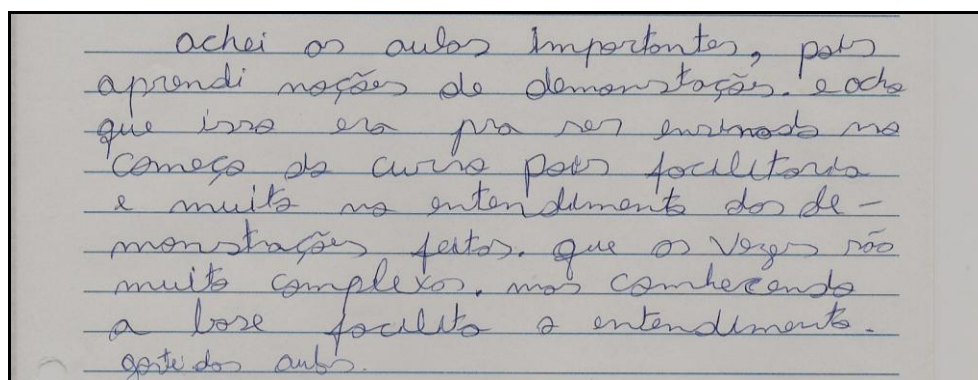 achei as aulas importantes, pois
aprendi noções de demonstações. e acho
que isso era pra ser ensinado no
começo do curso pois facilitaria
e muito no entendimento das de-
monstrações feitas. que as vezes são
muito complexas. mas conhecendo
a base facilita o entendimento.
gostei das aulas.